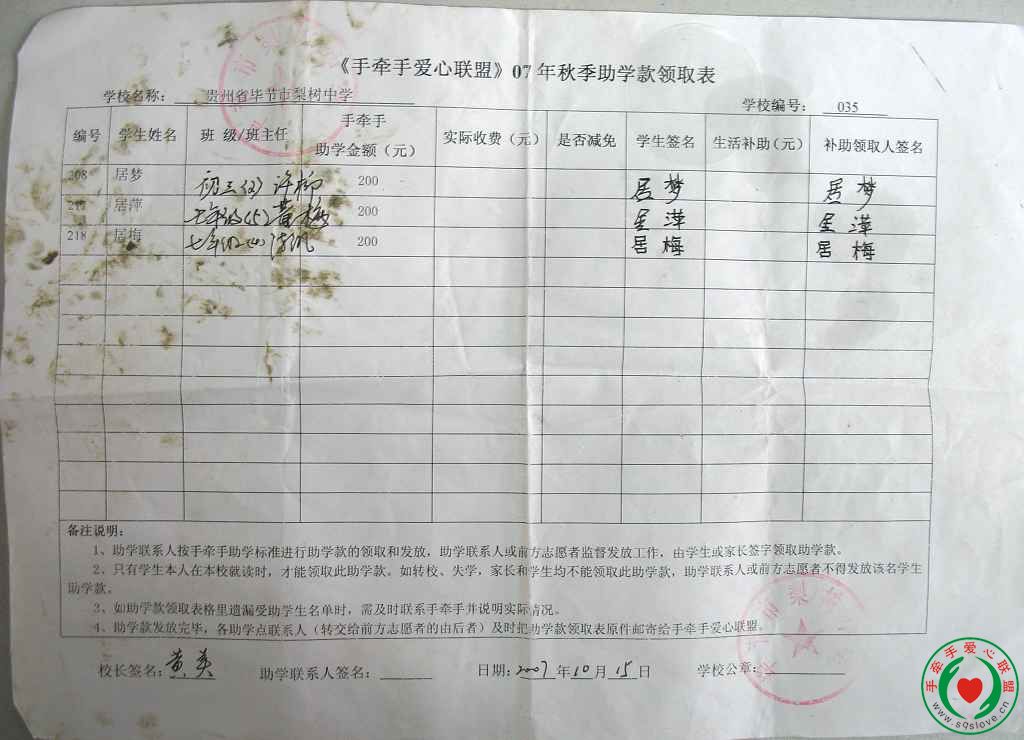 《手牵手爱心联盟》07年秋季助学款领取表
学校名称: 贵州省毕节市梨树中学 学校编号: 035
编号 学生姓名 班 级/班主任 手牵手助学金额（元） 实际收费（元） 是否减免 学生签名 生活补助（元） 补助领取人签名
208 居梦 初三 许柳 200 居梦 居梦
居萍 七年级(5) 黄梅 200 居萍 居萍
218 居梅 七年级 200 居梅 居梅
备注说明:
1、助学联系人按手牵手助学标准进行助学款的领取和发放，助学联系人或前方志愿者监督发放工作，由学生或家长签字领取助学款。
2、只有学生本人在本校就读时，才能领取此助学款。如转校、失学，家长和学生均不能领取此助学款，助学联系人或前方志愿者不得发放该名学生
助学款。
3、如助学款领取表格里遗漏受助学生名单时，需及时联系手牵手并说明实际情况。
4、助学款发放完毕，各助学点联系人（转交给前方志愿者的由后者）及时把助学款领取表原件邮寄给手牵手爱心联盟。
校长签名: 黄美 助学联系人签名: 日期: 2007年10月15日 学校公章:
手牵手爱心联盟
www.sqslove.cn